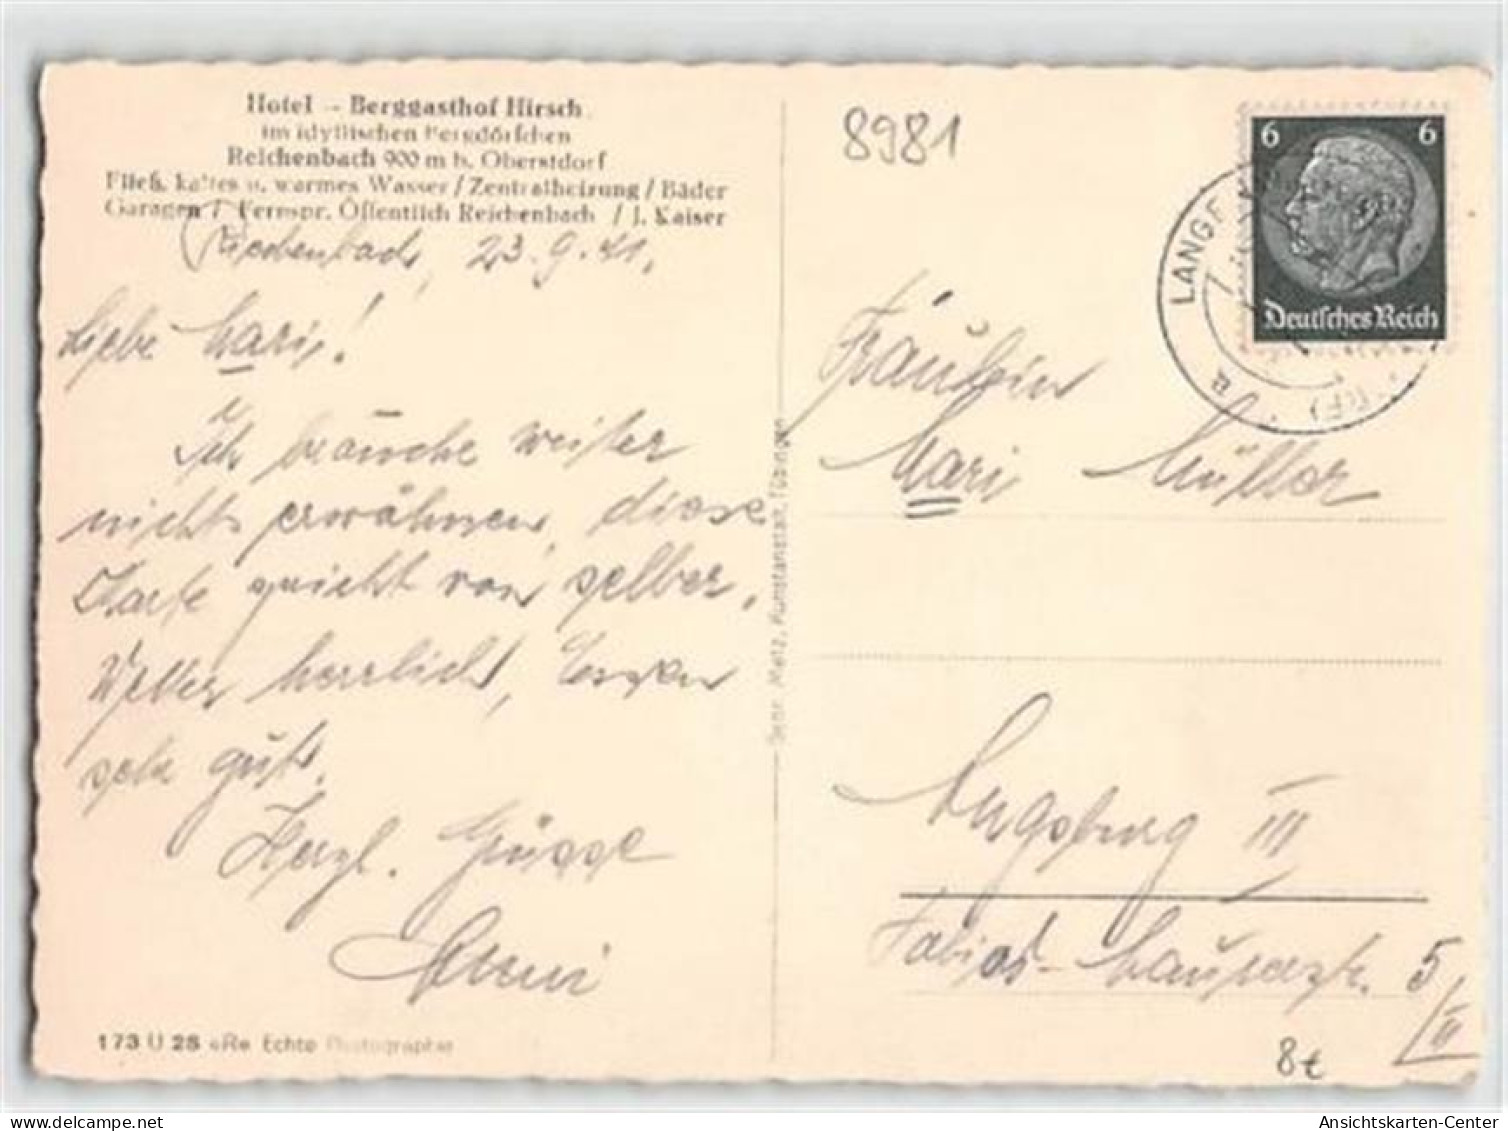 Hotel - Berggasthof Hirsch
im idyllischen Bergdörfchen
Reichenbach 900 m b. Oberstdorf
Fließ. kaltes u. warmes Wasser / Zentralheizung / Bäder
Garagen / Fernspr. Öffentlich Reichenbach / J. Kaiser
Reichenbach, 23.9.41.
Liebe Mari!
Ich brauche weiter
nichts erwähnen, diese
Karte spricht von selber.
Wetter herrlich, Essen
sehr gut.
Herzl. Grüsse
173 U 28 «R» Echte Photographie
Gebr. Metz, Kunstanstalt, Tübingen
8981
6 6
Deutsches Reich
LANGE
a
Fräulein
Mari Müller
Augsburg III
5/II
8€
delcampe.net
Ansichtskarten-Center